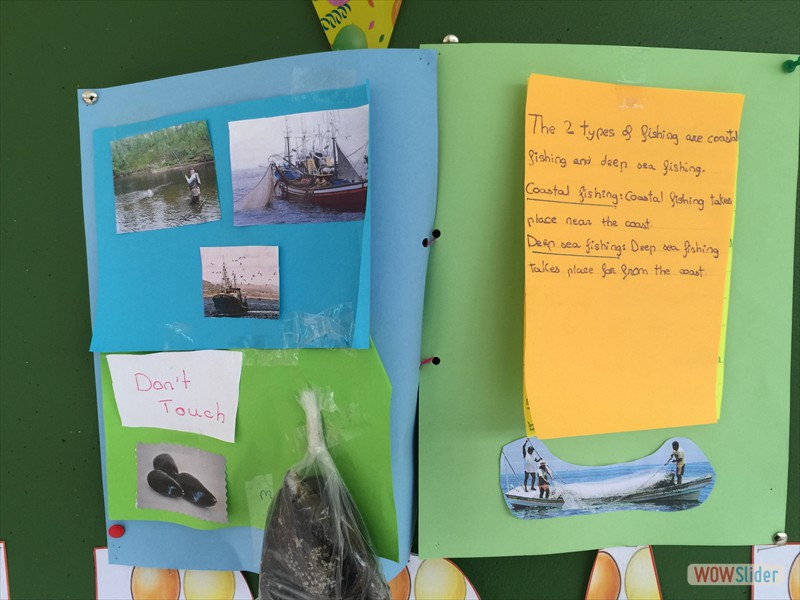 Don't
Touch
The 2 types of fishing are coastal
fishing and deep sea fishing.
Coastal fishing: Coastal fishing takes
place near the coast.
Deep sea fishing: Deep sea fishing
takes place far from the coast.
WOWSlider